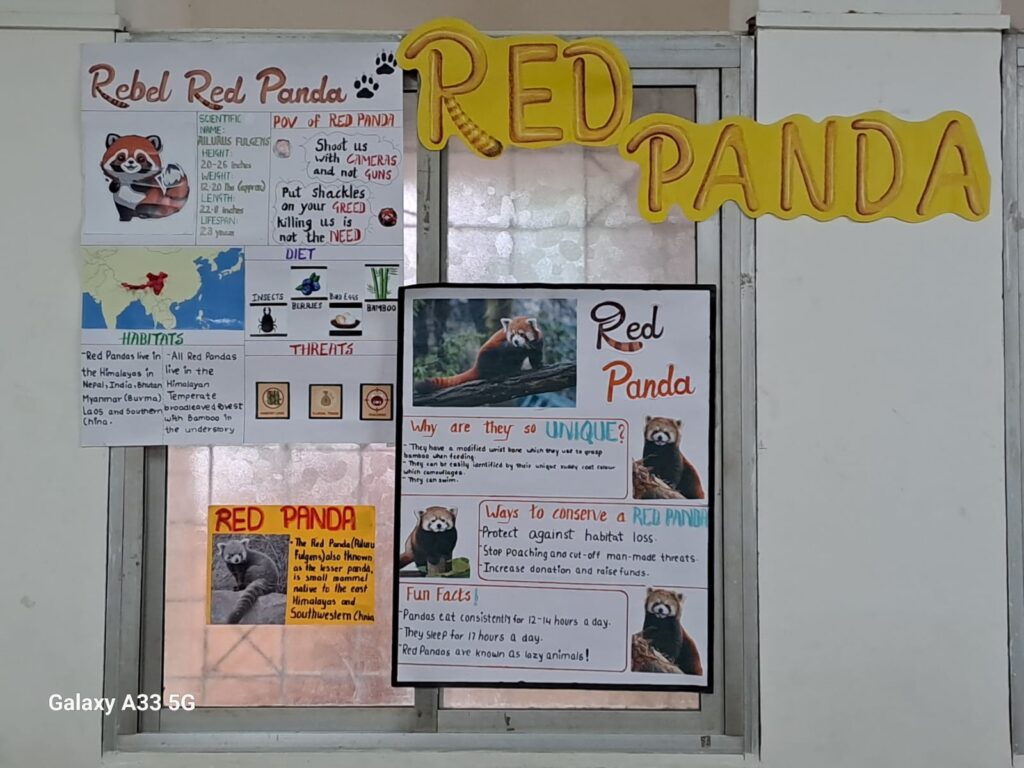 RED
PANDA
Rebel Red Panda
SCIENTIFIC
NAME:
AILURUS FULGENS
HEIGHT:
20-26 inches
WEIGHT:
12-20 lbs (approx)
LENGTH:
22-11 inches
LIFESPAN:
23 years
POV of RED PANDA
Shoot us
with CAMERAS
and not GUNS
Put shackles
on your GREED
killing us is
not the NEED
DIET
INSECTS
BERRIES
BIRD EGGS
BAMBOO
HABITATS
-Red Pandas live in
the Himalayas in
Nepal, India, Bhutan
Myanmar (Burma)
Laos and Southern
China.
-All Red Pandas
live in the
Himalayan
Temperate
broadleaved forest
with Bamboo in
the understory
THREATS
Red
Panda
Why are they so UNIQUE?
-They have a modified wrist bone which they use to grasp
bamboo when feeding
-They can be easily identified by their unique ruddy coat colour
which camouflages.
-They can swim.
Ways to conserve a RED PANDA
-Protect against habitat loss.
-Stop poaching and cut-off man-made threats.
-Increase donation and raise funds.
Fun Facts!
-Pandas eat consistently for 12-14 hours a day.
-They sleep for 17 hours a day.
-Red Pandas are known as lazy animals!
RED PANDA
-The Red Panda(Ailuru
Fulgens) also known
as the lesser panda,
is small mammel
native to the east
Himalayas and
Southwestern China
Galaxy A33 5G